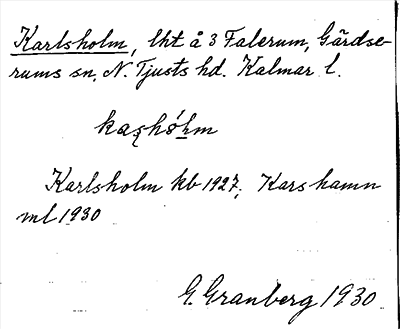 Karlsholm, lht å 3 Falerum, Gärdse-
rums sn, N. Tjusts hd. Kalmar l.
kaşhó̱hm
Karlsholm kb 1927; Karshamn
ml 1930
G. Granberg 1930